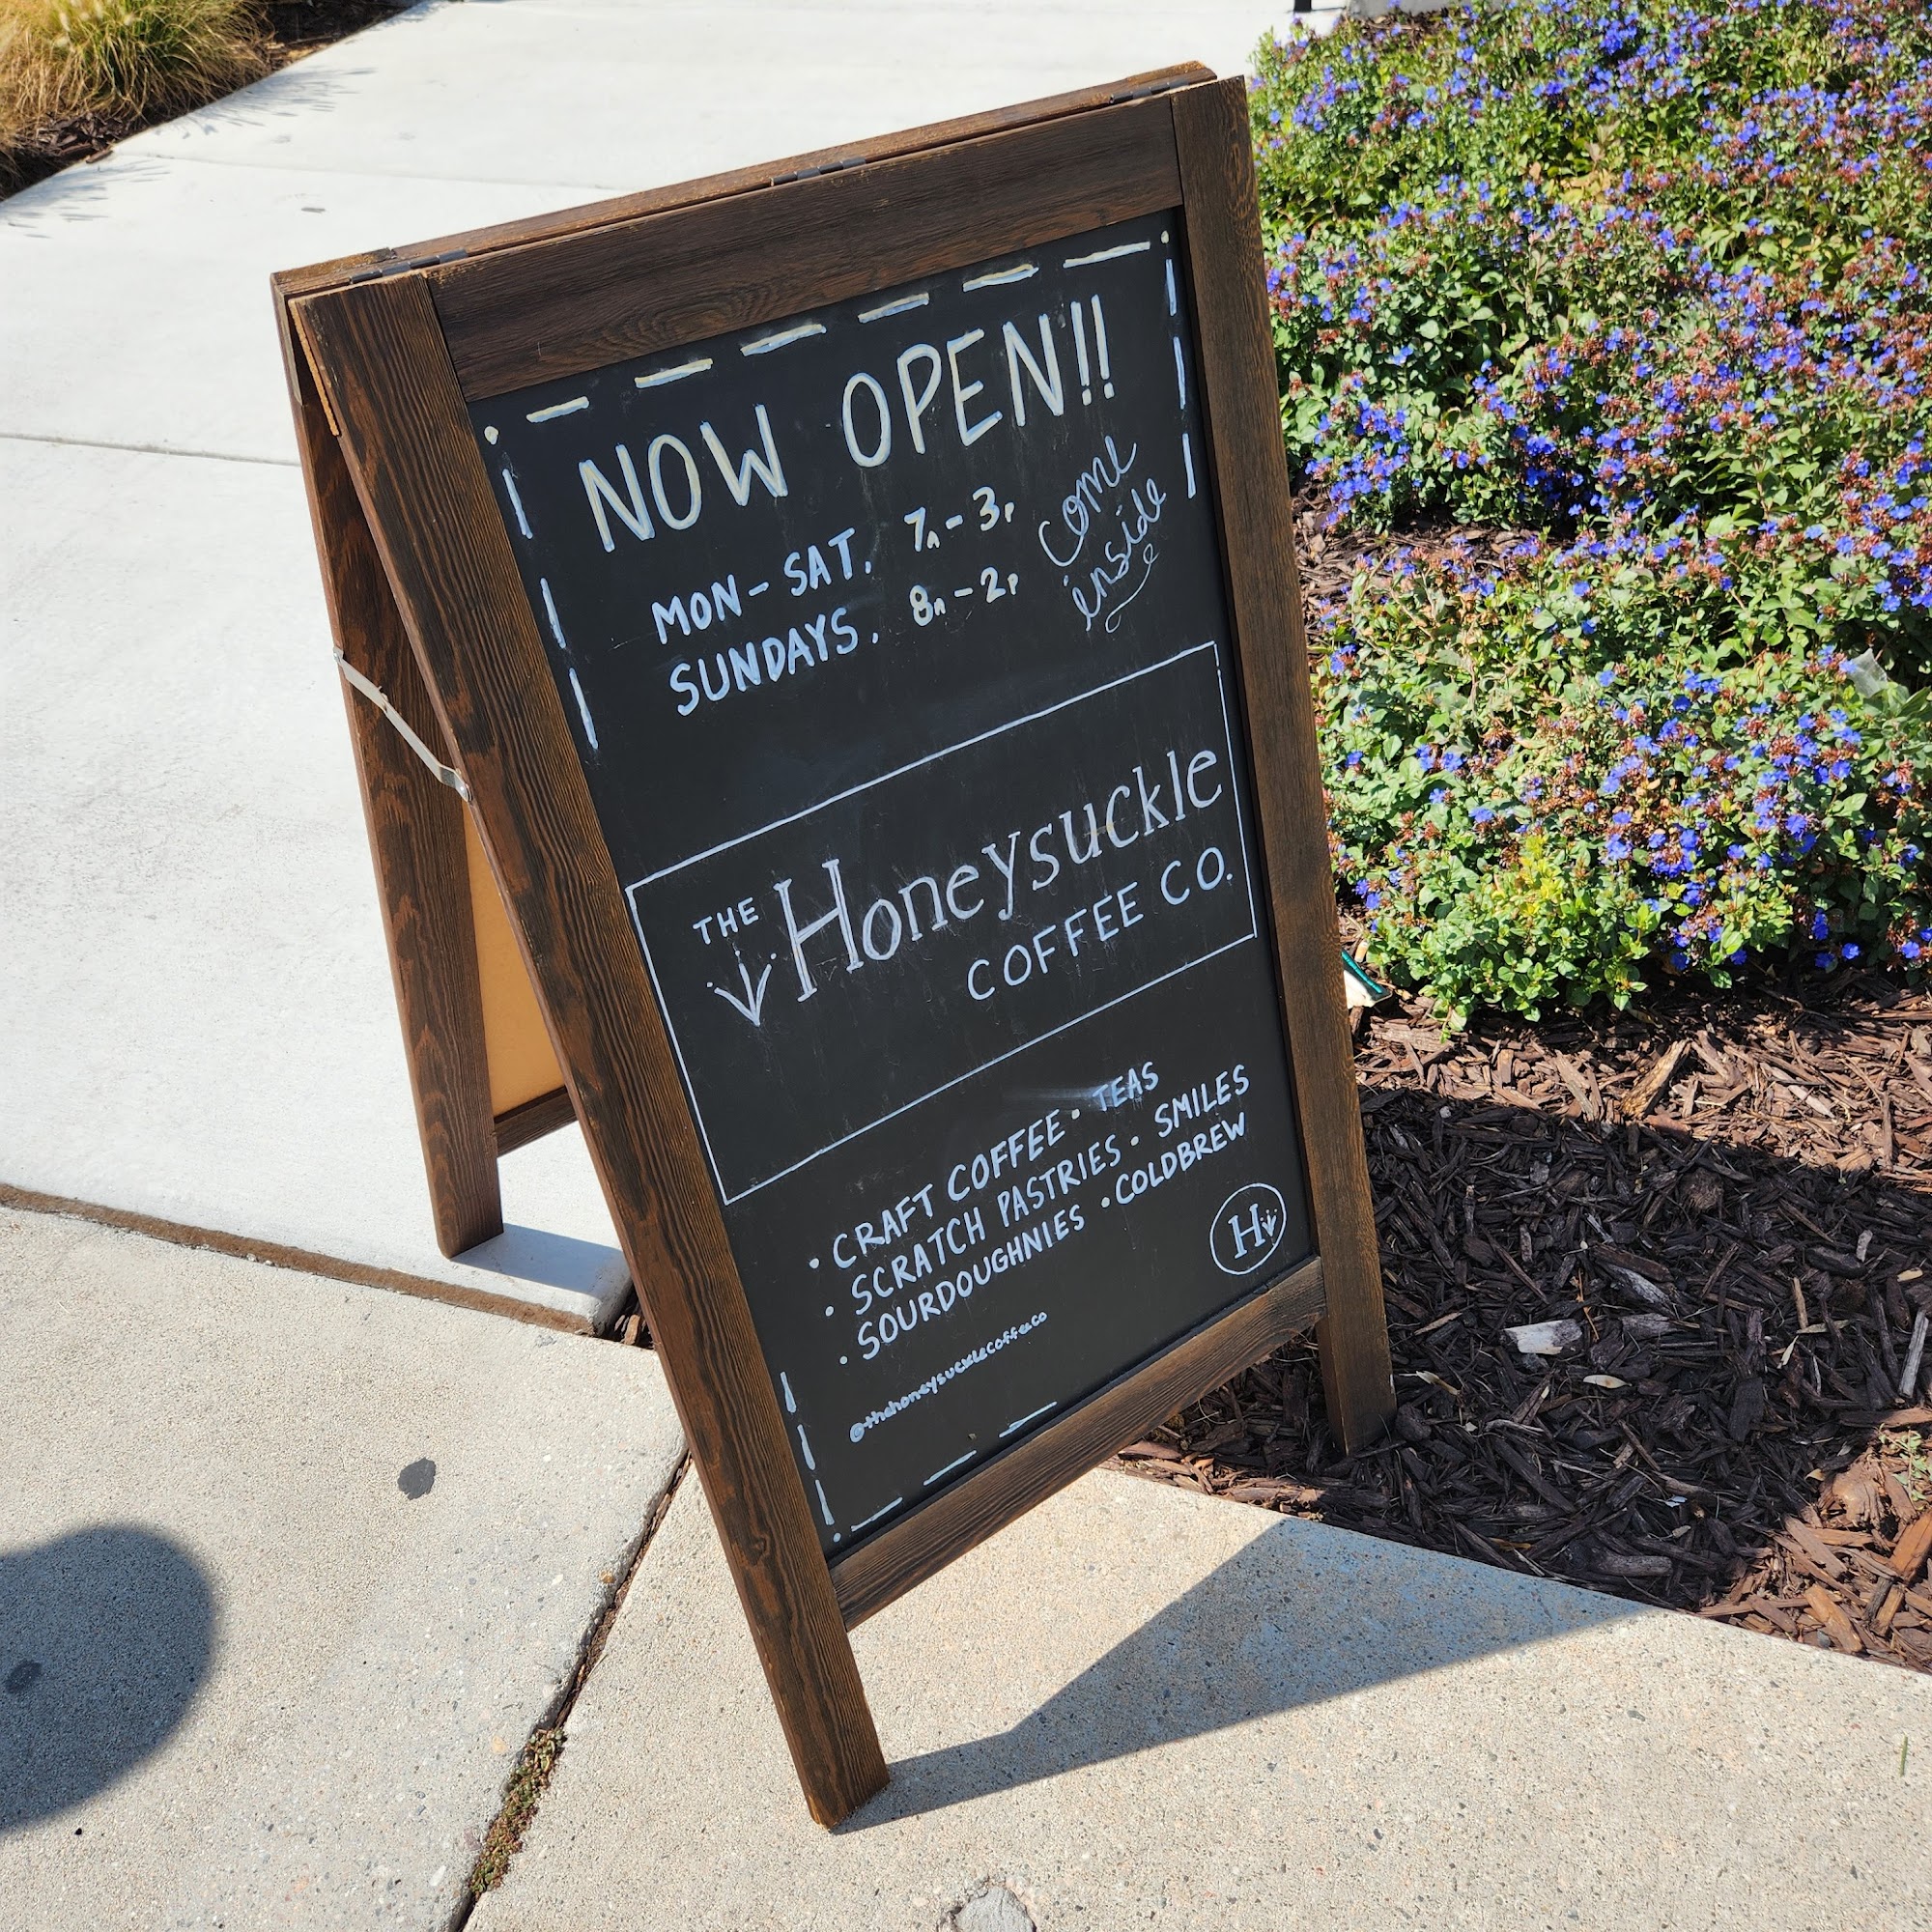 NOW OPEN!!
MON-SAT. 7A-3P
SUNDAYS. 8A-2P
come
inside
THE
Honeysuckle
COFFEE CO.
• CRAFT COFFEE • TEAS
• SCRATCH PASTRIES • SMILES
• SOURDOUGHNIES • COLDBREW
H
@thehoneysucklecoffeeco